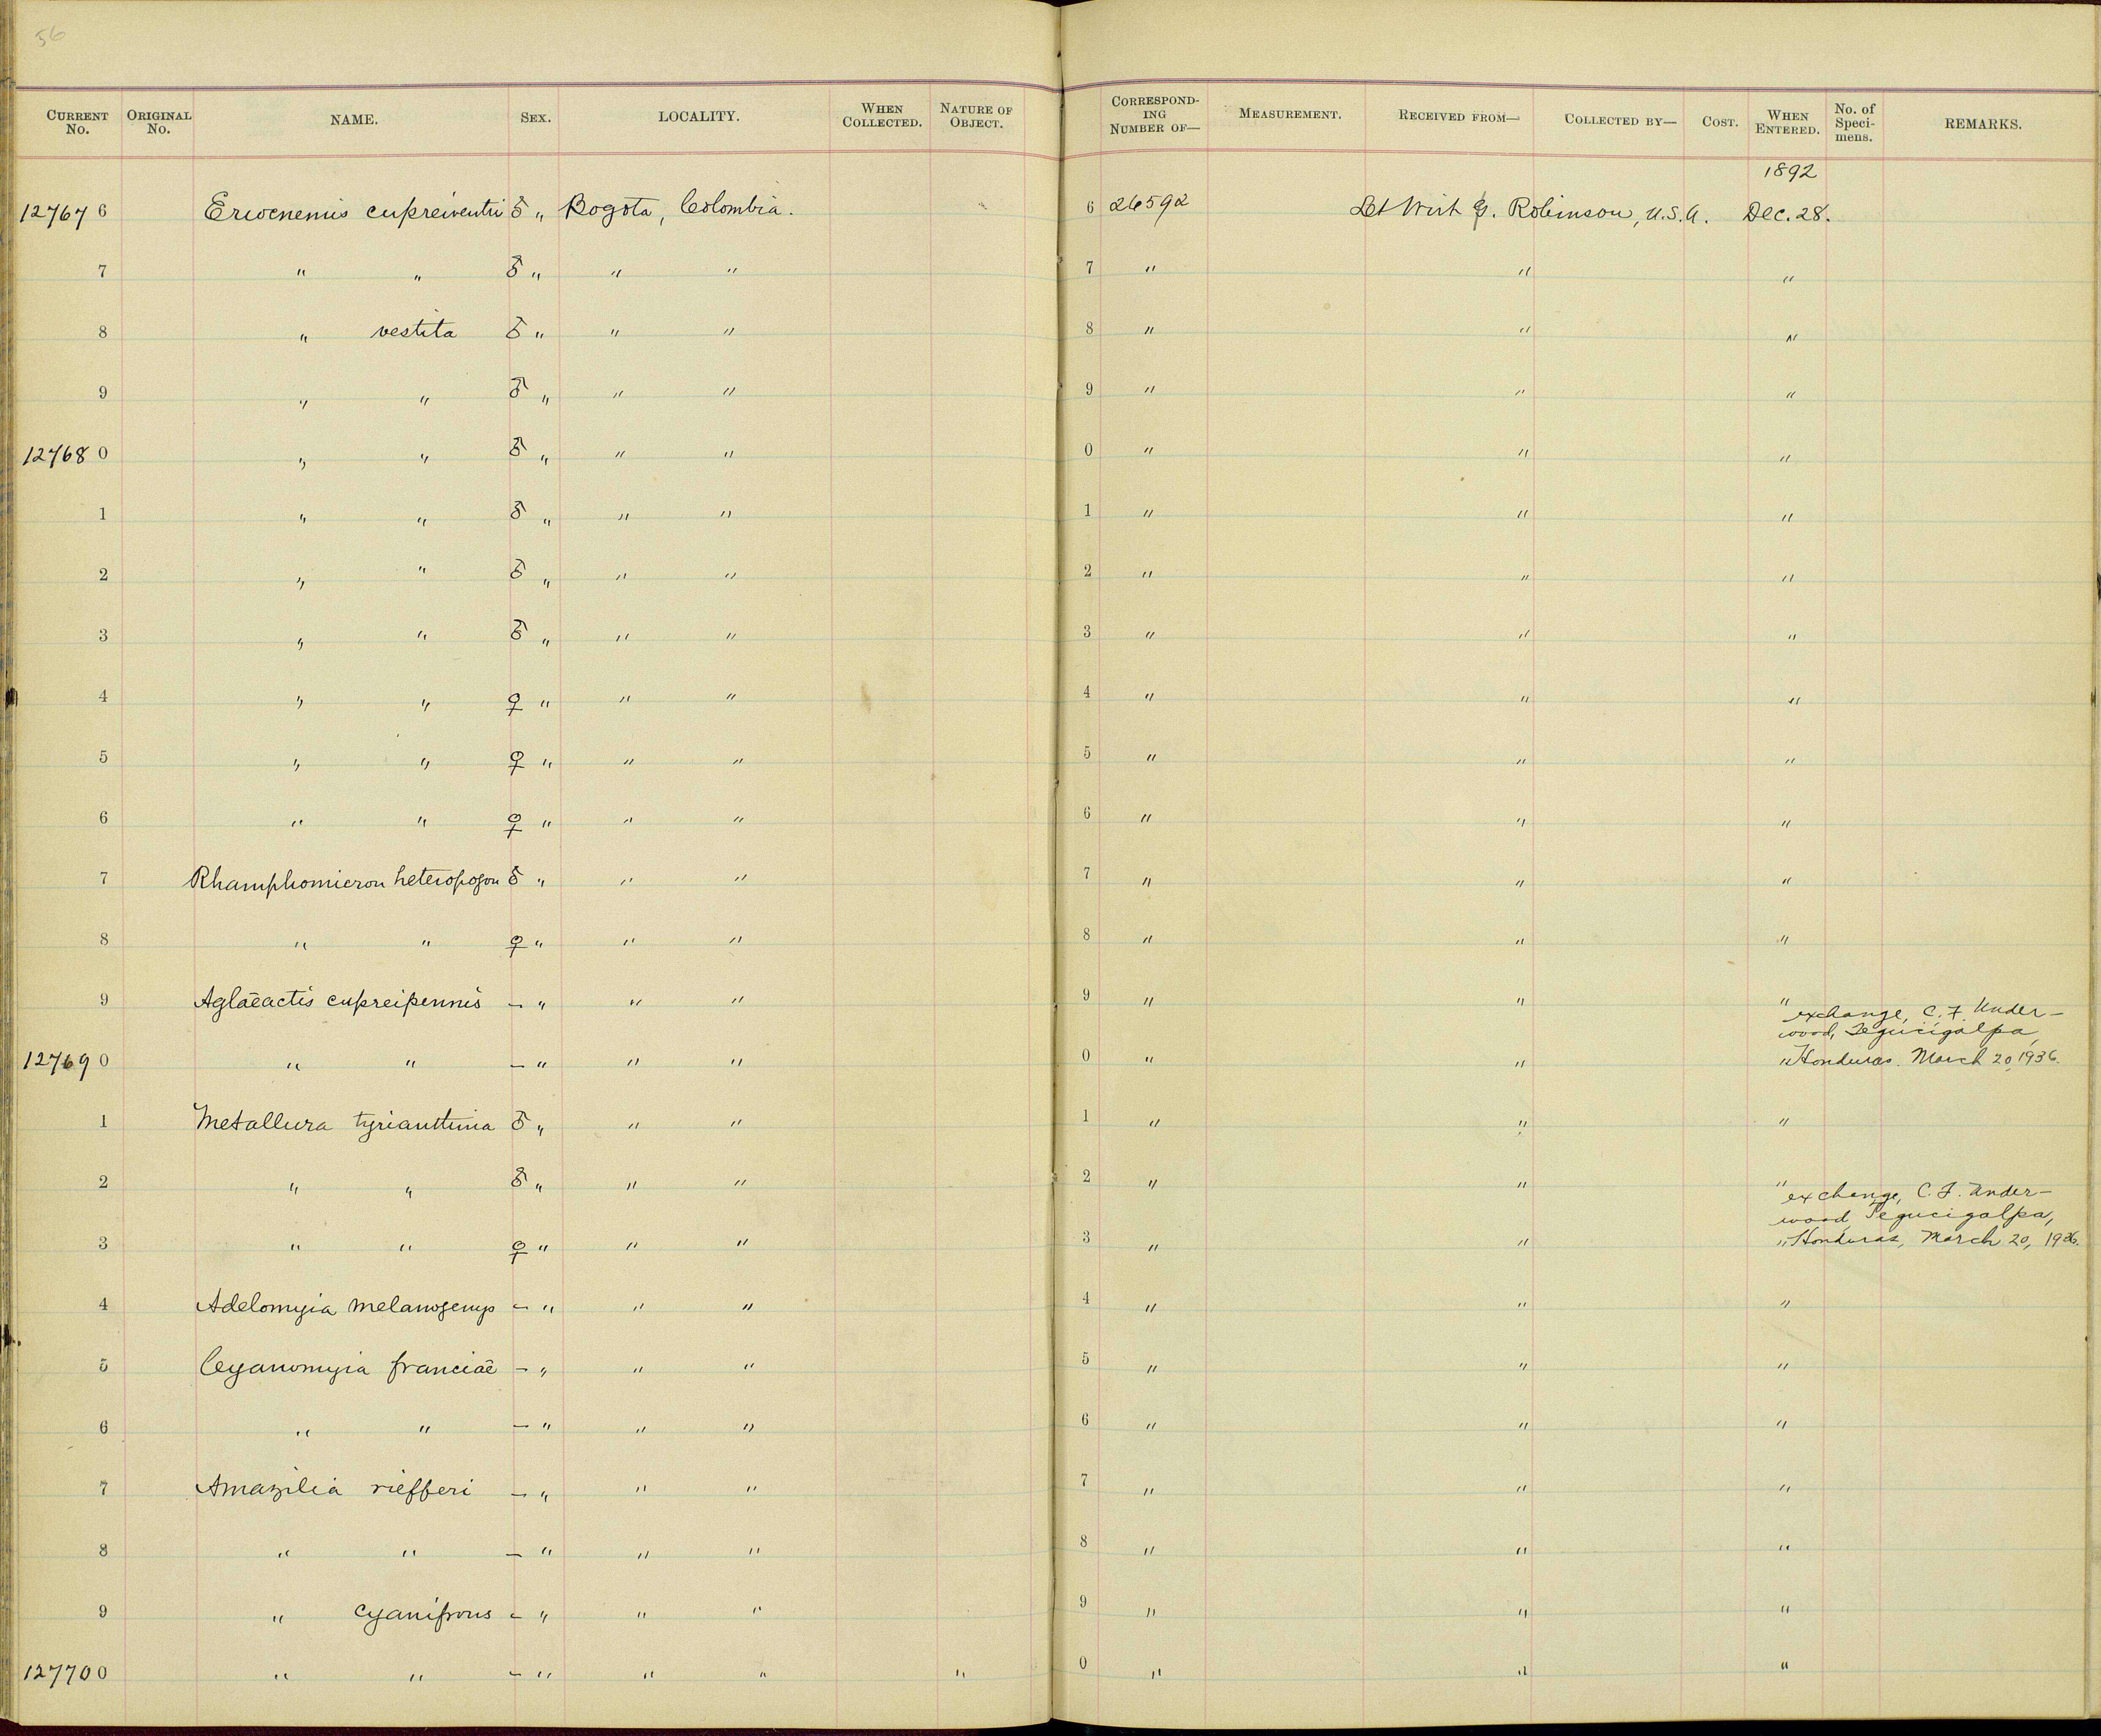 56
CURRENT No. ORIGINAL No. NAME. SEX. LOCALITY. WHEN COLLECTED. NATURE OF OBJECT. CORRESPONDING NUMBER OF— MEASUREMENT. RECEIVED FROM— COLLECTED BY— COST. WHEN ENTERED. No. of Specimens. REMARKS.
1892
12767 6 Eriocnemis cupreiventri ♂ " Bogota, Colombia. 6 26592 Lt Wirt G. Robinson, U.S.A. Dec. 28.
7 " " ♂ " " " 7 " " "
8 " vestita ♂ " " " 8 " " "
9 " " ♂ " " " 9 " " "
12768 0 " " ♂ " " " 0 " " "
1 " " ♂ " " " 1 " " "
2 " " ♂ " " " 2 " " "
3 " " ♂ " " " 3 " " "
4 " " ♀ " " " 4 " " "
5 " " ♀ " " " 5 " " "
6 " " ♀ " " " 6 " " "
7 Rhamphomicron heteropogon ♂ " " " 7 " " "
8 " " ♀ " " " 8 " " "
9 Aglaëactis cupreipennis – " " " 9 " " "
exchange, C. F. Under-
wood, Tegucigalpa,
12769 0 " " – " " " 0 " " " Honduras. March 20, 1936.
1 Metallura tyrianthina ♂ " " " 1 " " "
2 " " ♂ " " " 2 " " "
exchange, C. F. Under-
wood, Tegucigalpa,
3 " " ♀ " " " 3 " " " Honduras, March 20, 1936.
4 Adelomyia melanogenys – " " " 4 " " "
5 Cyanomyia franciaë – " " " 5 " " "
6 " " – " " " 6 " " "
7 Amazilia riefferi – " " " 7 " " "
8 " " – " " " 8 " " "
9 " cyanifrons – " " " 9 " " "
12770 0 " " – " " " " 0 " " "